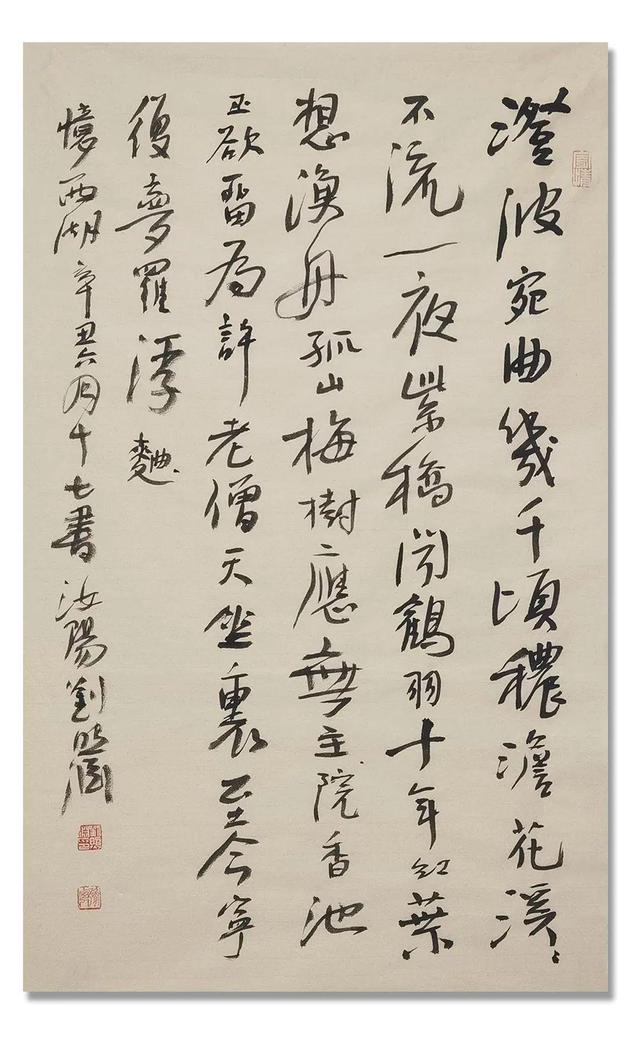 澄波宛曲幾千頃穠澹花溪、
不流一夜紫橋聞鶴羽十年紅葉
想漁舟孤山梅樹應無主院香池
欲留為許老僧天坐裏至今寧
復夢羅浮 麯、
憶西湖辛丑六月十七書汝陽劉